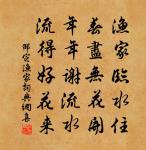 漁家臨水住
春盡無花開
年年謝流水
流得好花來
邵定漁家詞典網集